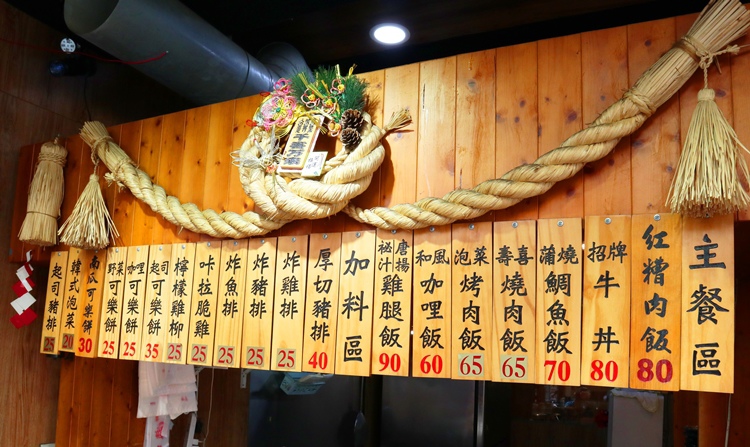 主餐區
紅糟肉飯 80
招牌牛丼 80
蒲燒鯛魚飯 70
壽喜燒肉飯 65
泡菜烤肉飯 65
和風咖哩飯 60
唐揚秘汁雞腿飯 90
加料區
厚切豬排 40
炸雞排 25
炸豬排 25
炸魚排 25
卡拉脆雞 25
檸檬雞柳 25
起司可樂餅 35
咖哩可樂餅 25
野菜可樂餅 25
南瓜可樂餅 30
韓式泡菜 20
起司豬排 25
千客萬来